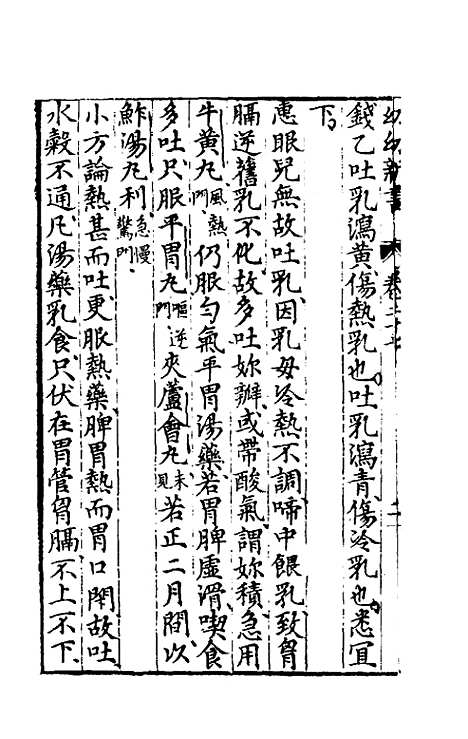 幼幼新書 卷二十七
錢乙吐乳瀉黃傷熱乳也吐乳瀉青傷冷乳也悉宜
下
惠眼兒無故吐乳因乳母冷熱不調啼中餵乳致胷
膈逆舊乳不化故多吐妳瓣或帶酸氣謂妳積急用
牛黃丸風熱門仍服勻氣平胃湯藥若胃脾虛滑喫食
多吐只服平胃丸嘔逆門夾蘆會丸未見若正二月間以
鮓湯丸利急慢驚門
小方論熱甚而吐更服熱藥脾胃熱而胃口閉故吐
水穀不通凡湯藥乳食只伏在胃管胷膈不上不下